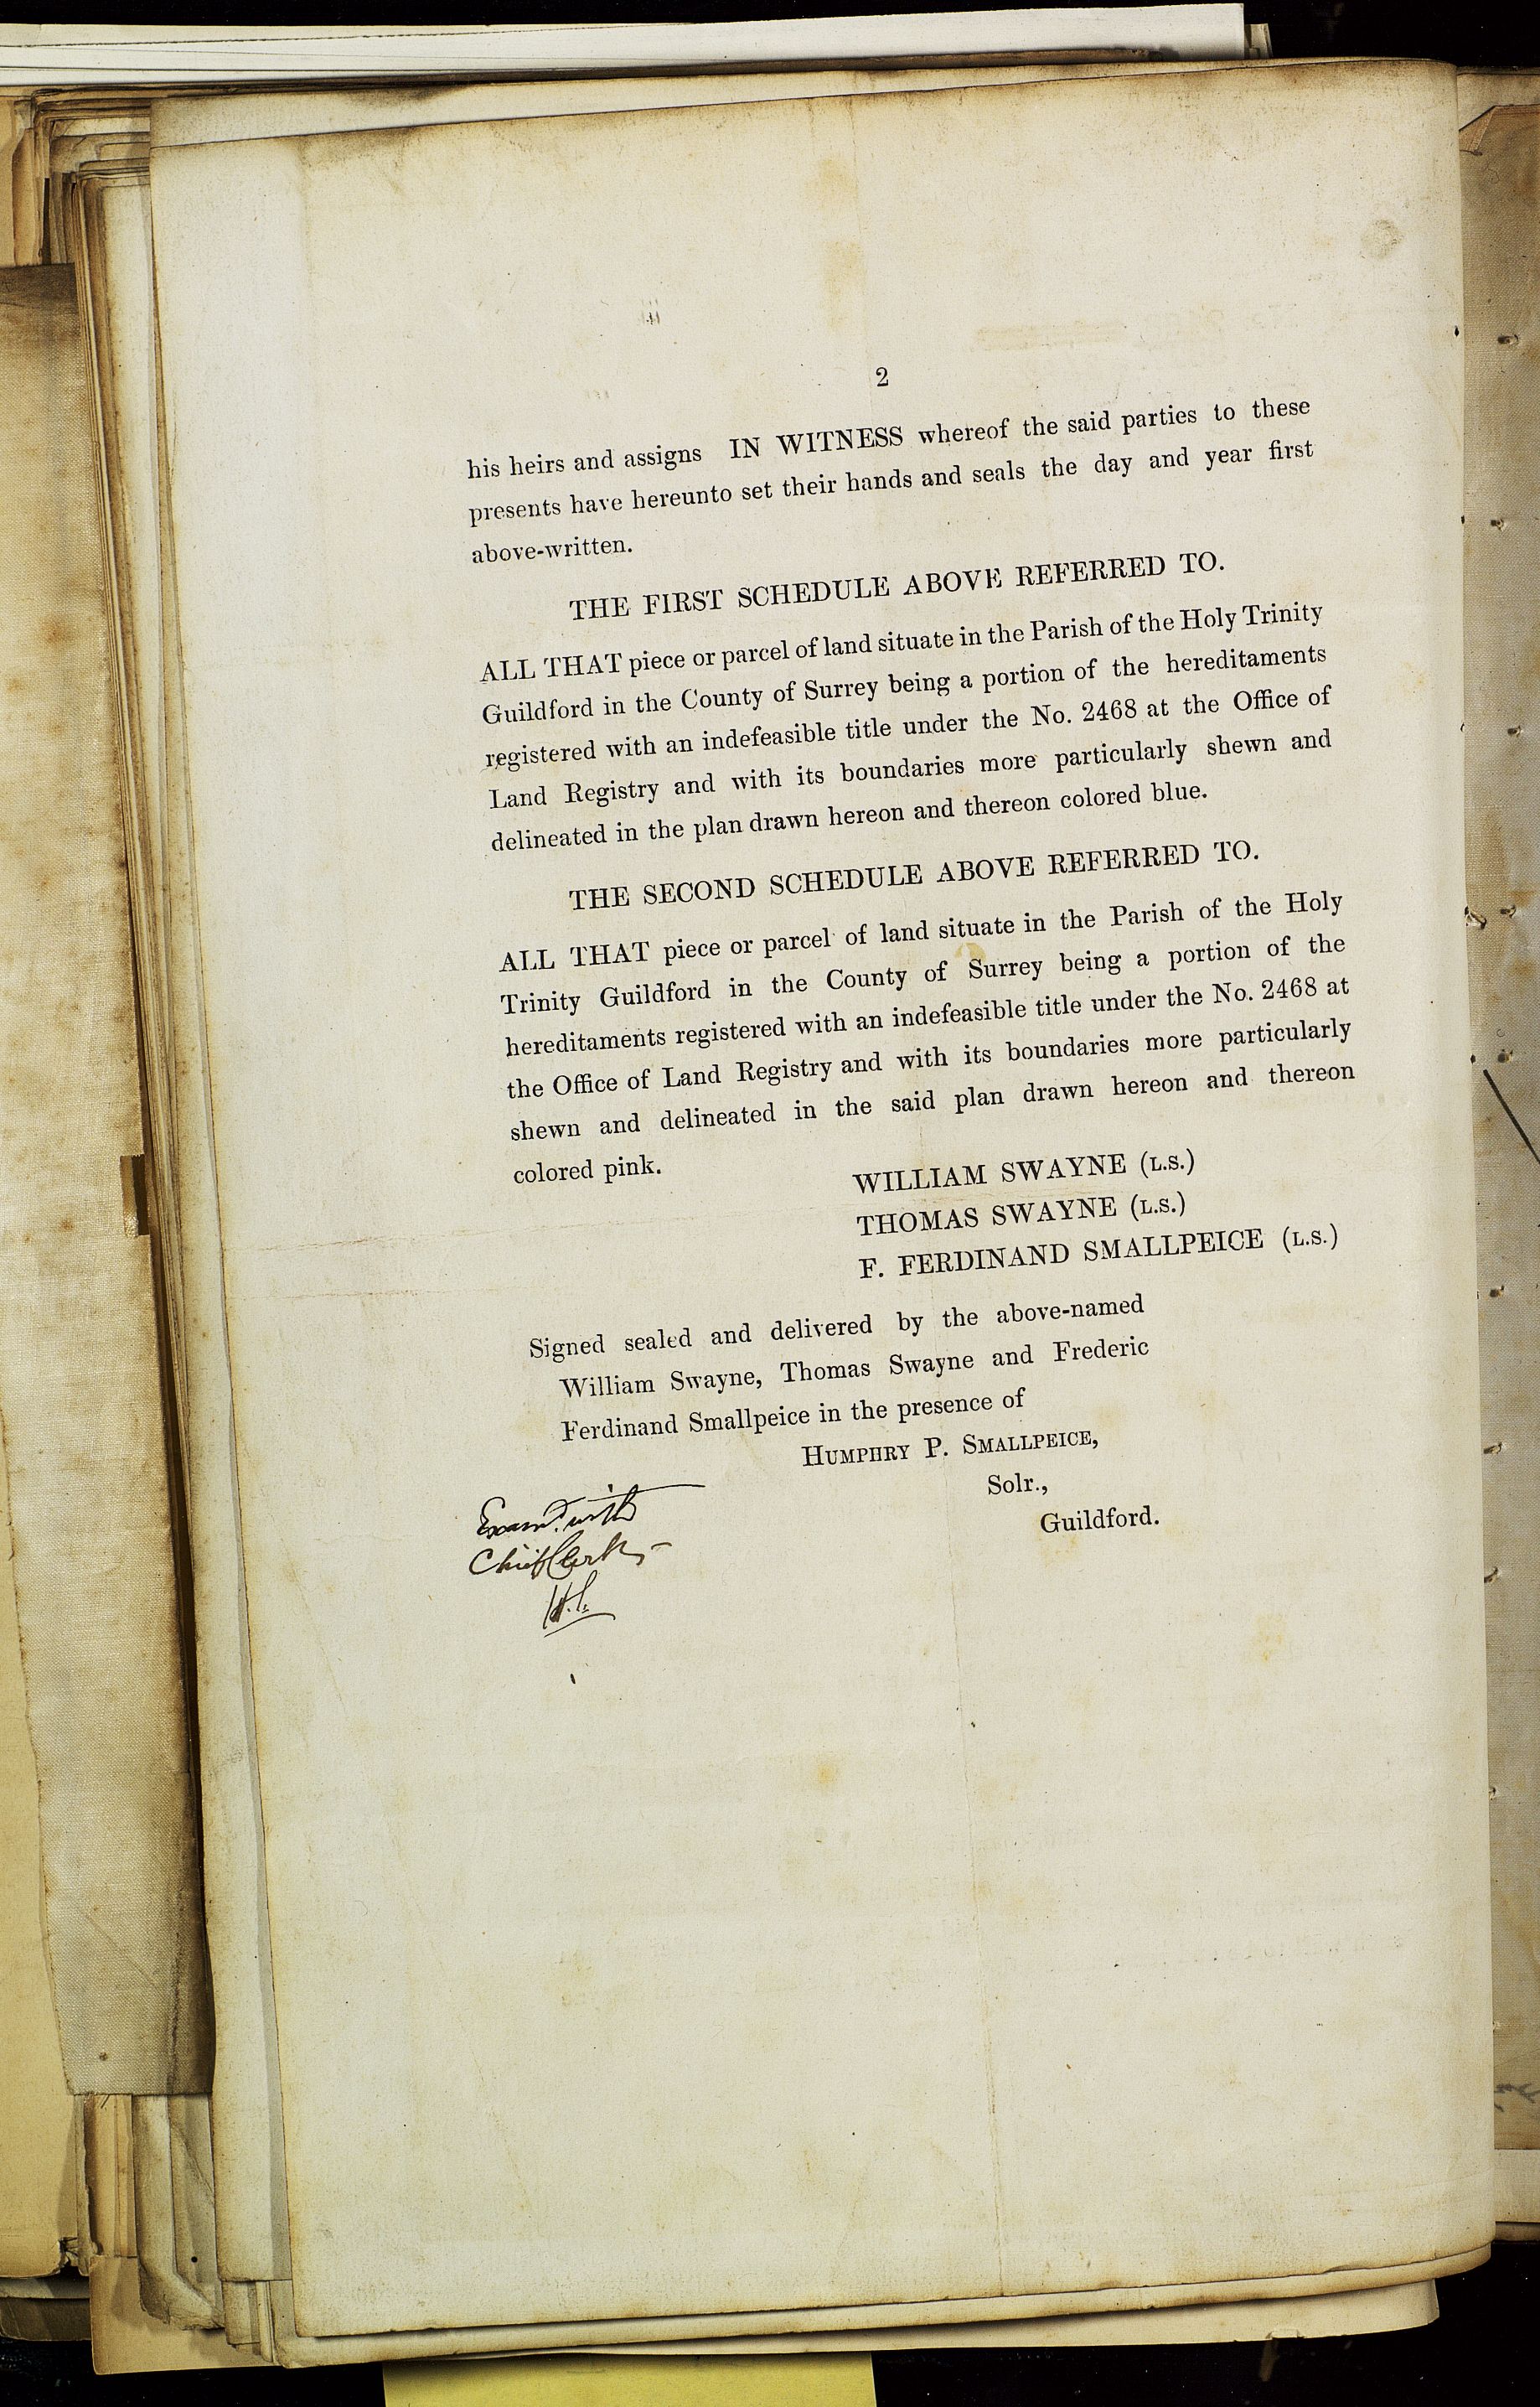 2
his heirs and assigns IN WITNESS whereof the said parties to these
presents have hereunto set their hands and seals the day and year first
above-written.
THE FIRST SCHEDULE ABOVE REFERRED TO.
ALL THAT piece or parcel of land situate in the Parish of the Holy Trinity
Guildford in the County of Surrey being a portion of the hereditaments
registered with an indefeasible title under the No. 2468 at the Office of
Land Registry and with its boundaries more particularly shewn and
delineated in the plan drawn hereon and thereon colored blue.
THE SECOND SCHEDULE ABOVE REFERRED TO.
ALL THAT piece or parcel of land situate in the Parish of the Holy
Trinity Guildford in the County of Surrey being a portion of the
hereditaments registered with an indefeasible title under the No. 2468 at
the Office of Land Registry and with its boundaries more particularly
shewn and delineated in the said plan drawn hereon and thereon
colored pink.
WILLIAM SWAYNE (L.S.)
THOMAS SWAYNE (L.S.)
F. FERDINAND SMALLPEICE (L.S.)
Signed sealed and delivered by the above-named
William Swayne, Thomas Swayne and Frederic
Ferdinand Smallpeice in the presence of
HUMPHRY P. SMALLPEICE,
Solr.,
Guildford.
Examd. with
Chief Clerk